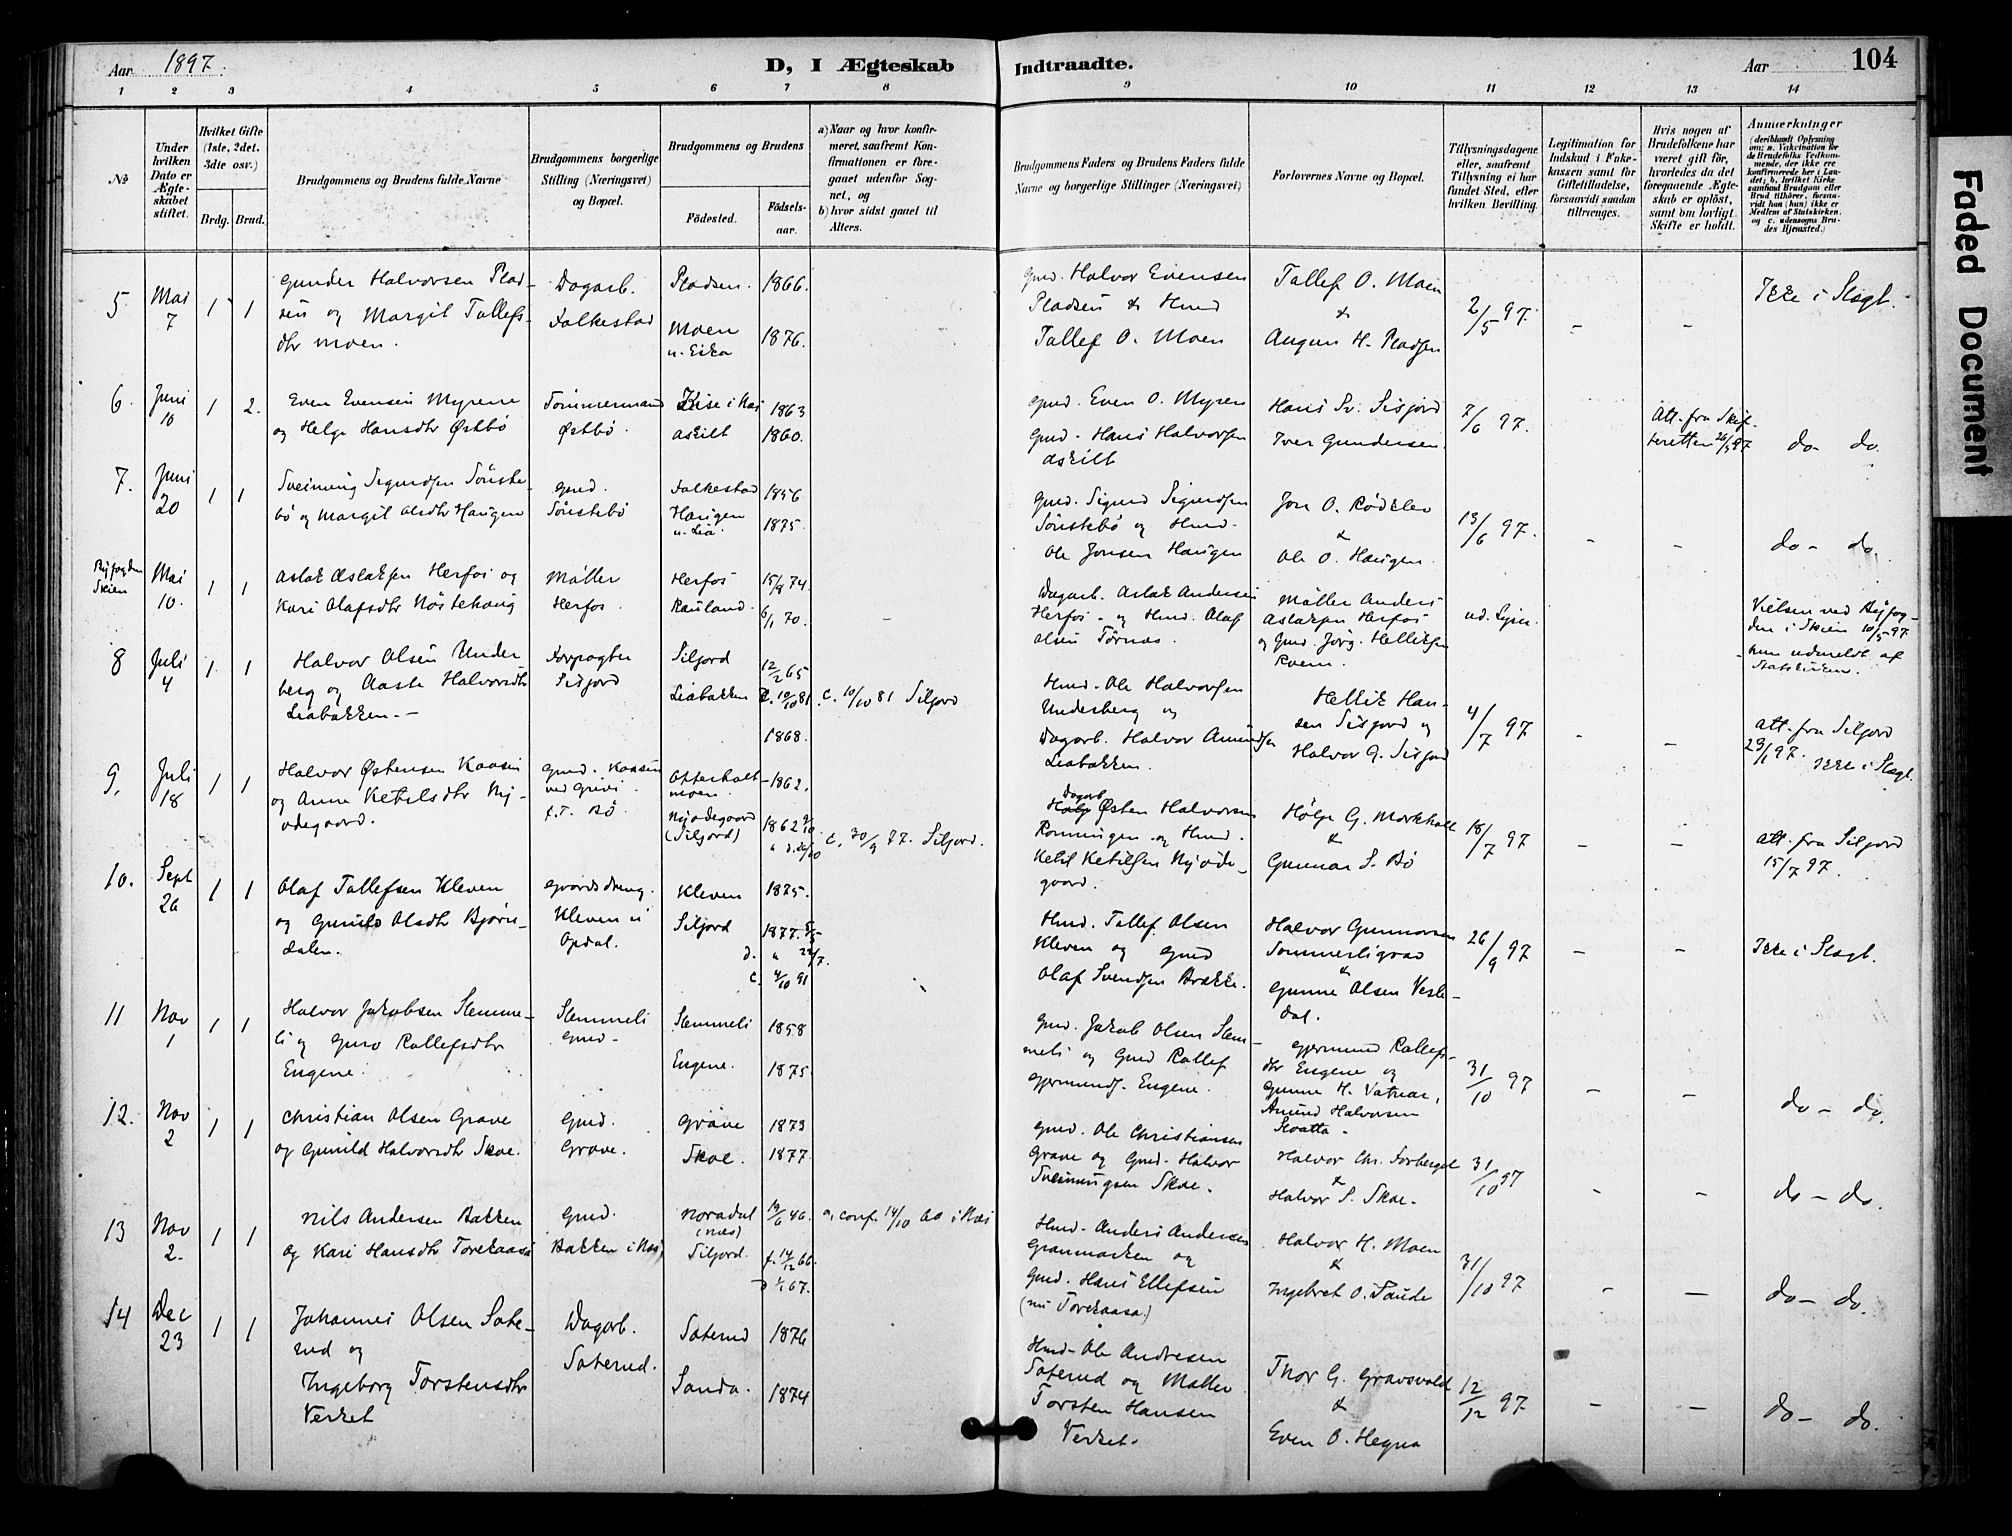 Aar 1897.
D, I Ægteskab
Indtraadte.
Aar
104
1 2 3 4 5 6 7 8 9 10 11 12 13 14
№
Under
hvilken
Dato er
Ægte-
skabet
stiftet.
Hvilket Gifte
(1ste, 2det,
3die osv.)
Brdg. Brud.
Brudgommens og Brudens fulde Navne
Brudgommens borgerlige
Stilling (Næringsvei)
og Bopæl.
Brudgommens og Brudens
Födested.
Födsels-
aar.
a) Naar og hvor konfir-
meret, saafremt Kon-
firmationen er fore-
gaaet udenfor Sog-
net, og
b) hvor sidst gaaet til
Alters.
Brudgommens Faders og Brudens Faders fulde
Navne og borgerlige Stillinger (Næringsvei)
Forlovernes Navne og Bopæl.
Tillysningsdagene
eller, saafremt
Tillysning ei har
fundet Sted, efter
hvilken Bevilling.
Legitimation for
Indskud i Enke-
kassen samt for
Giftetilladelse,
forsaavidt saadan
tiltrænges.
Hvis nogen af
Brudefolkene har
været gift för,
hvorledes da det
foregaaende Ægte-
skab er oplöst,
samt om lovligt
Skifte er holdt.
Anmærkninger
(deriblandt Oplysning
om: a. Vakcination for
de Brudefolks Vedkom-
mende, der ikke ere
konfirmerede her i Lan-
det; b. hvilket Kirke-
samfund Brudgom eller
Brud tilhörer, forsaa-
vidt han (hun) ikke er
Medlem af Statskirken,
og c. udensogns Bru-
des Hjemsted.)
5. Mai 7 1 1
Gunder Halvorsen Plad-
sen og Margit Tallefs-
dtr Moen.
Dagarb.
Folkestad
Pladsen. 1866.
Moen
u. Eika 1876.
Gmd. Halvor Evensen
Pladsen & Hmd
Tallef O. Moen
Tallef O. Moen
&
Augun H. Pladsen
2/5 97.
-
-
Ikke i Slægt.
6. Juni 10 1 2.
Even Evensen Myrene
og Helge Hansdtr Østbø
Tømmermand
Østbø.
Kise i Næs 1863
Askilt 1860.
Gmd. Even O. Myren
Gmd. Hans Halvorsen
Askilt
Hans Sv. Sisjord
Iver Gundersen.
7/6 97.
Att. fra Skif-
teretten 26/5 97
do- do.
7. Juni 20 1 1
Sveinung Sigurdsen Sønste-
bø og Margit Olsdtr Haugen
Gmd.
Sønstebø
Folkestad 1856
Haugen
u. Lia. 1875.
Gmd. Sigurd Sigurdsen
Sønstebø og Hmd.
Ole Jonsen Haugen
Jon O. Rødklev
&
Ole O. Haugen.
13/6 97.
-
-
do- do.
Byfogden
Skien
Mai 10. 1 1
Aslak Aslaksen Herfos og
Kari Olafsdtr Nøstehaug
Møller
Herfos.
Herfos 15/8 74.
Rauland. 6/1 70.
-
Dagarb. Aslak Andersen
Herfos - og Hmd. Olaf
Olsen Tørnes.
Møller Anders
Aslaksen Herfos
og Gmd. Jørg. Helliksen
ud. Lysn.
Vielsen ved Byfog-
den i Skien 10/5 97
- hun udmeldt af
Statskirken.
8 Juli 4 1. 1
Halvor Olsen Under-
berg og Aaste Halvorsdtr
Liabakken. -
Forpagter
Sisjord
Siljord 12/2 65
Liabakken c. 10/10 81
1868.
c. 10/10 81 Siljord
Hmd. Ole Halvorsen
Underberg og
Dagarb. Halvor Amundsen
Liabakken.
Hellik Han-
sen Sisjord og
Halvor G. Sisjord
4/7 97
-
-
att. fra Siljord
23/1 97. Ikke i Slægt.
9. Juli 18 1 1
Halvor Østensen Kaasin
og Anne Ketilsdtr Ny-
ødegaard.
Gmd. Kaasin
ved Grivi
f.T. Bø
Otterholt-
moen. 1862.
Nyødegaard
(Siljord) 1862
c. 30/9 77. Siljord.
Dagarb
Østen Halvorsen
Rønningen og Hmd.
Ketil Ketilsen Nyøde-
gaard.
Hølje G. Markholt
&
Gunnar S. Bø
18/7 97
-
-
att. fra Siljord
15/7 97.
10. Sept 26 1 1
Olaf Tallefsen Kleven
og Gunild Olsdtr Bjørn-
dalen.
Gaardsdreng.
Kleven i
Opdal.
Kleven 1875.
Siljord 1877.
c. 4/10 91
Hmd. Tallef Olsen
Kleven og Gmd
Olaf Svendsen Brække.
Halvor Gunnarsen
Sommerligrav
&
Gunne Olsen Vesle-
dal.
26/9 97
-
-
Ikke i Slægt.
11 Nov 1 1 1
Halvor Jakobsen Slemme-
li og Guro Rollefsdtr
Eugene.
Slemmeli
Gmd.
Slemmeli 1858
Eugene. 1875.
Gmd. Jakob Olsen Slem-
meli og Gmd Rollef
Gjermunds. Eugene.
Gjermund Rollefs-
dtr Eugene og
Gunne H. Vatnar,
Amund Halvorsen
Skoatta -
31/10 97
-
-
do - do.
12. Nov 2 1 1
Christian Olsen Grave
og Gunild Halvorsdtr Skoe.
Gmd.
Grave.
Grave 1873
Skoe. 1877.
Gmd. Ole Christiansen
Grave og Gmd. Halvor
Sveinungsen Skoe.
Halvor Chr. Forberget
&
Halvor S. Skoe.
31/10 97
-
-
do - do.
13 Nov 2. 1 1
Nils Andersen Bakken
og Kari Hansdtr Torekaasa
Gmd.
Bakken i Næs
Noradal
(Næs) 14/6 46.
Siljord. f. 14/12 66.
d 1/1 67.
a, conf. 14/10 60 i Næs
Hmd. Anders Andersen
Granmarken og
Gmd. Hans Ellefsen
(nu Torekaasa)
Halvor H. Moen
&
Ingebret O. Saude
31/10 97
-
-
do- do.
14 Dec 23 1 1
Johannes Olsen Sate-
rud og
Ingeborg Torstensdtr
Verket
Dagarb.
Saterud.
Saterud 1876
Sanda. 1874
Hmd. Ole Andresen
Saterud og Møller
Torsten Hansen
Verket.
Thor G. Gravsvald
&
Even O. Hegna
12/12 97.
-
-
do- do.
Faded Document